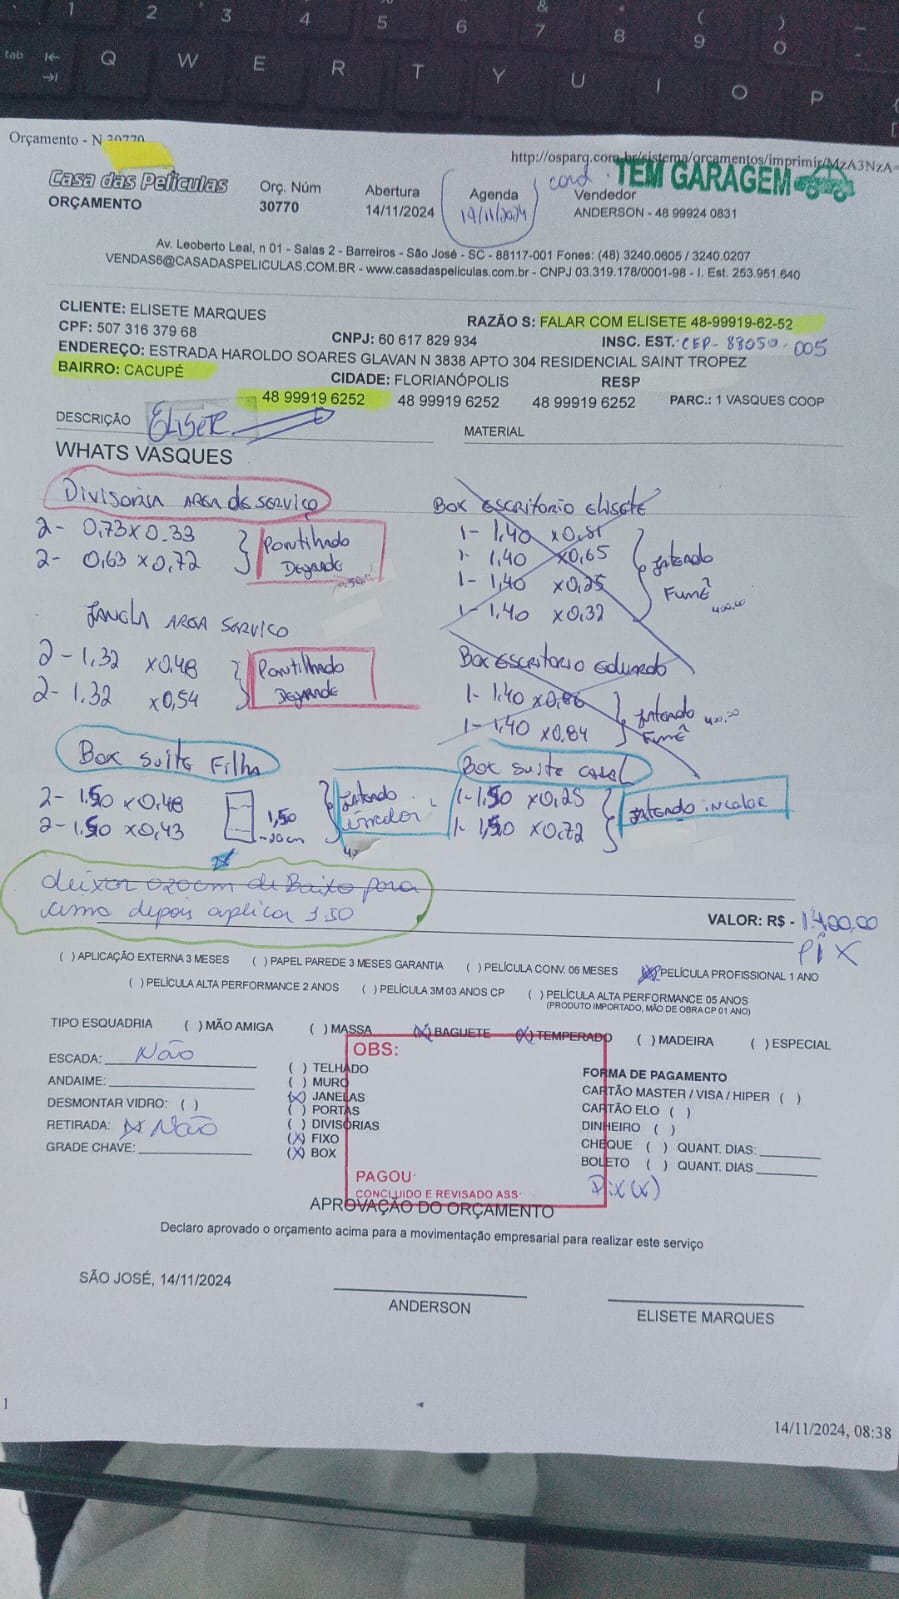 1 2 3 4 5 6 & 7 8 ( 9 ) 0
tab Q W E R T Y U I O P
Orçamento - N 30770
http://osparq.com.br/sistema/orcamentos/imprimir/MzA3NzA=
Casa das Películas
ORÇAMENTO
Orç. Núm
30770
Abertura
14/11/2024
Agenda
19/11/2024
cond. TEM GARAGEM
Vendedor
ANDERSON - 48 99924 0831
Av. Leoberto Leal, n 01 - Salas 2 - Barreiros - São José - SC - 88117-001 Fones: (48) 3240.0605 / 3240.0207
VENDAS6@CASADASPELICULAS.COM.BR - www.casadaspeliculas.com.br - CNPJ 03.319.178/0001-98 - I. Est. 253.951.640
CLIENTE: ELISETE MARQUES
RAZÃO S: FALAR COM ELISETE 48-99919-62-52
CPF: 507 316 379 68
CNPJ: 60 617 829 934
INSC. EST.: CEP- 88050-005
ENDEREÇO: ESTRADA HAROLDO SOARES GLAVAN N 3838 APTO 304 RESIDENCIAL SAINT TROPEZ
BAIRRO: CACUPÉ
CIDADE: FLORIANÓPOLIS
RESP
48 99919 6252 48 99919 6252 48 99919 6252 PARC.: 1 VASQUES COOP
DESCRIÇÃO ELISETE
MATERIAL
WHATS VASQUES
Divisoria AREA de SERVIÇO
2- 0,73x0.33
2- 0,63 x0,72
Pontilhado
Degrade
JANELA AREA SERVICO
2-1,32 x0,48
2-1,32 x0,54
Pontilhado
Degrade
Box escritorio Elisete
1- 1,40 x0,81
1- 1,40 x0,65
1-1,40 x0,25
1-1,40 x0,32
Jateado
Fumê
400,00
Box escritorio Eduardo
1- 1,40 x0,86
1-1,40 x0.84
Jateado
Fumê
400,00
Box suite Filha
2- 1.50 x0,48
2-1.50 x0,43
1,50
-20cm
Jateado
incolor
Box suite casal
1-1,50 x0,25
1- 1,50 x0,72
Jateado incolor
deixar 020cm de Baixo para
cima depois aplica 1.50
VALOR: R$ - 1.400,00
PIX
( ) APLICAÇÃO EXTERNA 3 MESES ( ) PAPEL PAREDE 3 MESES GARANTIA ( ) PELÍCULA CONV. 06 MESES (X) PELÍCULA PROFISSIONAL 1 ANO
( ) PELÍCULA ALTA PERFORMANCE 2 ANOS ( ) PELÍCULA 3M 03 ANOS CP ( ) PELÍCULA ALTA PERFORMANCE 05 ANOS
(PRODUTO IMPORTADO, MÃO DE OBRA CP 01 ANO)
TIPO ESQUADRIA ( ) MÃO AMIGA ( ) MASSA (X) BAGUETE (X) TEMPERADO ( ) MADEIRA ( ) ESPECIAL
ESCADA: Não
ANDAIME:
DESMONTAR VIDRO: ( )
RETIRADA: Não
GRADE CHAVE:
( ) TELHADO
( ) MURO
(X) JANELAS
( ) PORTAS
( ) DIVISÓRIAS
(X) FIXO
(X) BOX
OBS:
PAGOU:
CONCLUIDO E REVISADO ASS:
FORMA DE PAGAMENTO
CARTÃO MASTER / VISA / HIPER ( )
CARTÃO ELO ( )
DINHEIRO ( )
CHEQUE ( ) QUANT. DIAS:
BOLETO ( ) QUANT. DIAS
Pix (x)
APROVAÇÃO DO ORÇAMENTO
Declaro aprovado o orçamento acima para a movimentação empresarial para realizar este serviço
SÃO JOSÉ, 14/11/2024
ANDERSON
ELISETE MARQUES
1
14/11/2024, 08:38